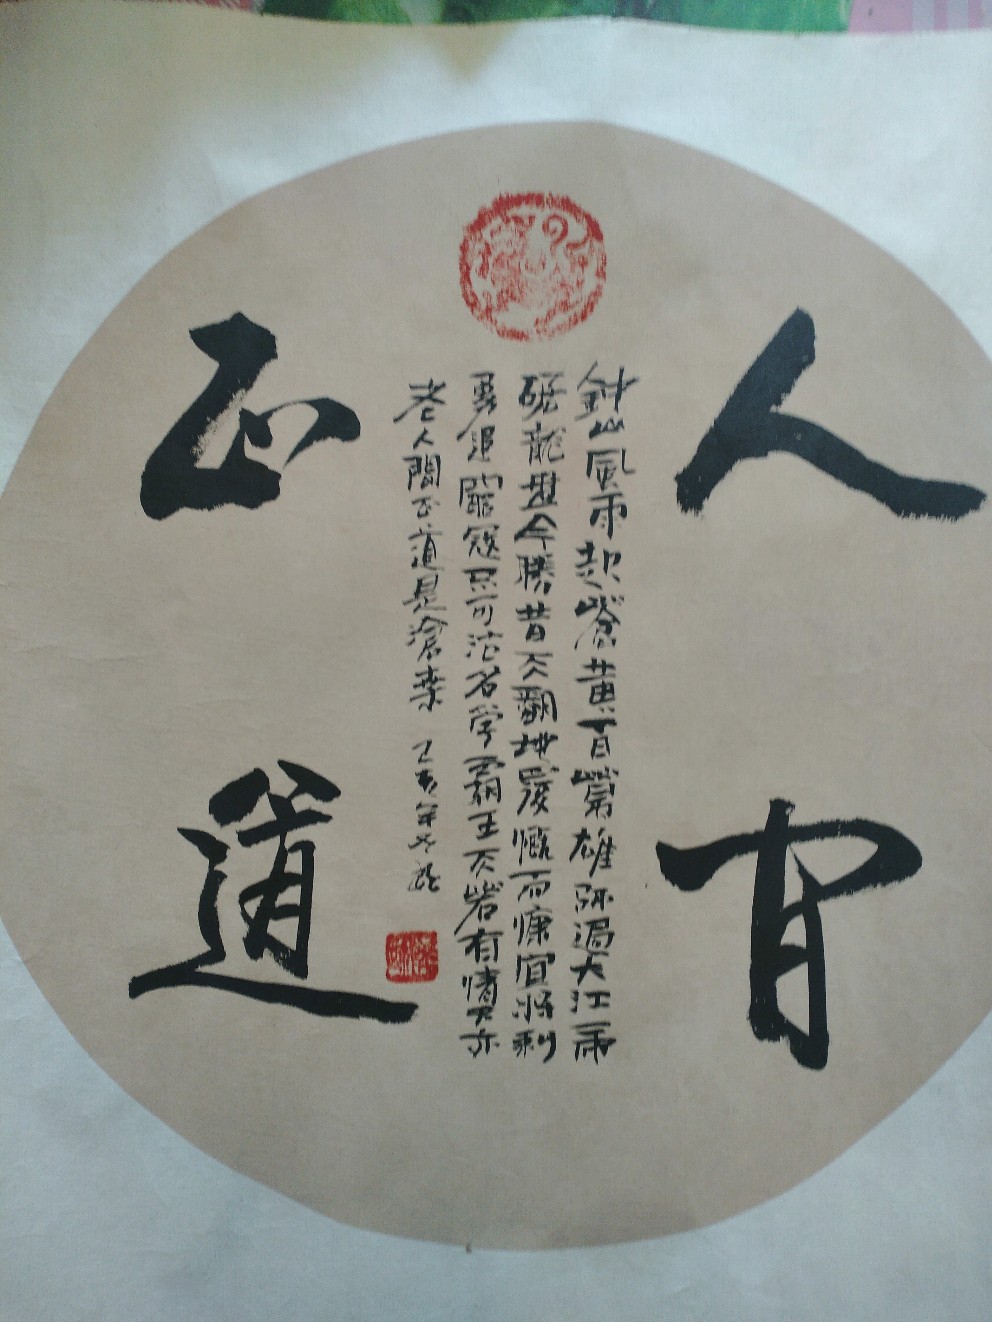 人间
鈡山風雨起蒼黄百萬雄師過大江虎
踞龍盤今勝昔天翻地覆慨而慷宜將剩
勇追窮寇不可沽名学霸王天若有情天亦
老人間正道是滄桑 己亥年冬
正道